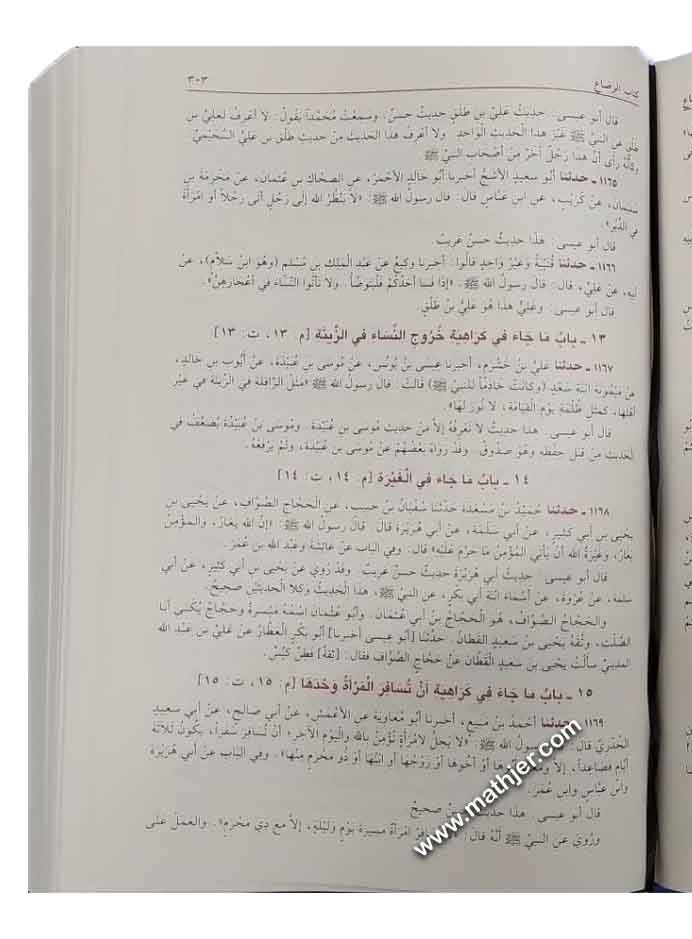 كتاب الرضاع ٣٠٣
قال أبو عيسى: حديثُ عَليِّ بنِ طَلْقٍ حديثٌ حسنٌ. وسَمِعْتُ مُحمَّداً يقولُ: لا أعْرِفُ لعَليِّ بنِ
طَلْقٍ عن النبيِّ ﷺ غَيْرَ هذا الْحَديثِ الْوَاحِدِ. ولا أعْرِفُ هذا الحَدِيثَ مِنْ حديثِ طَلْقِ بنِ عَليٍّ السُّحَيْمِيِّ.
وكأنَّهُ رأى أنَّ هذا رَجُلٌ آخرُ مِنْ أصْحَابِ النبيِّ ﷺ
١١٦٥ ـ حدثنا أبو سعيدٍ الأشَجُّ أخبرنا أبو خالدٍ الأحْمَرُ، عن الضحاكِ بنِ عُثمانَ، عَنْ مَخْرَمَةَ بنِ
سليمانَ، عَنْ كُرَيْبٍ، عَن ابنِ عبَّاسٍ قال: قال رسولُ الله ﷺ: «لا يَنْظُرُ الله إلى رَجُلٍ أتى رَجُلاً أو امْرَأةً
في الدُّبُرِ».
قال أبو عيسى: هذا حديثٌ حسنٌ غريبٌ.
١١٦٦ ـ حدثنا قُتَيْبَةُ وَغَيْرُ وَاحِدٍ قالُوا: أخبرنا وكيعٌ عَنْ عَبْدِ الْمَلِكِ بنِ مُسْلمٍ (وهُوَ ابنُ سَلاَّمٍ)، عَنْ
أبيهِ، عَنْ عَليٍّ، قالَ: قال رَسولُ الله ﷺ: «إذَا فَسَا أحَدُكُمْ فَلْيَتَوَضَّأْ. ولا تَأْتُوا النِّسَاءَ في أعْجَازِهِنَّ».
قال أبو عيسى: وعَليٌّ هذا هُوَ عَليُّ بنُ طَلْقٍ.
١٣ ـ بابُ مَا جَاءَ في كَرَاهِيَةِ خُرُوجِ النِّسَاءِ في الزِّينَةِ [م: ١٣، ت: ١٣]
١١٦٧ ـ حدثنا عَليُّ بنُ خَشْرَمٍ، أخبرنا عيسى بنُ يُونُسَ، عَنْ مُوسى بنِ عُبَيْدَةَ، عَنْ أيُّوبَ بنِ خالدٍ،
عَنْ مَيْمُونَةَ ابْنَةِ سَعْدٍ (وكانَتْ خَادِماً للنبيِّ ﷺ) قالتْ: قال رسولُ الله ﷺ «مَثَلُ الرَّافِلَةِ في الزِّينَةِ في غَيْرِ
أهْلِهَا، كمَثَلِ ظُلْمَةِ يَوْمِ القِيَامَةِ، لا نُورَ لَهَا».
قال أبو عيسى: هذا حديثٌ لا نَعْرِفُهُ إلاَّ مِنْ حديثِ مُوسى بنِ عُبَيْدَةَ. ومُوسى بنُ عُبَيْدَةَ يُضَعَّفُ في
الْحَدِيثِ مِنْ قِبَلِ حِفْظِهِ وهُوَ صَدُوقٌ. وقَدْ رَوَاهُ بَعْضُهُمْ عَنْ مُوسى بنِ عُبَيْدَةَ، ولَمْ يَرْفَعْهُ.
١٤ ـ بابُ مَا جَاءَ في الْغَيْرَةِ [م: ١٤، ت: ١٤]
١١٦٨ ـ حدثنا حُمَيْدُ بنُ مَسْعَدَةَ حَدّثنَا سُفْيَانُ بنُ حبيبٍ، عن الحَجَّاجِ الصَّوَّافِ، عَنْ يَحْيى بنِ
يَحْيى بنِ أبي كَثِيرٍ، عَنْ أبي سَلَمَةَ، عَنْ أبي هُرَيْرَةَ قالَ: قالَ رسولُ الله ﷺ: «إنَّ الله يَغَارُ، والْمؤْمِنُ
يَغَارُ، وغَيْرَةُ الله أنْ يَأْتِيَ الْمُؤْمِنُ مَا حَرَّمَ عَلَيْهِ» قال: وفي الباب عَنْ عائشةَ وعَبْدِ الله بنِ عُمَرَ.
قال أبو عيسى: حديثُ أبي هُرَيْرَةَ حديثٌ حسنٌ غريبٌ. وقَدْ رُوِيَ عَنْ يَحْيى بنِ أبي كَثِيرٍ، عَنْ أبي
سلمةَ، عَنْ عُرْوَةَ، عَنْ أسْمَاءَ ابْنَةِ أبي بَكْرٍ، عن النبيِّ ﷺ، هذا الْحَدِيثُ وكلا الْحديثَيْنِ صحيحٌ.
والْحَجَّاجُ الصَّوَّافُ، هُوَ الْحَجَّاجُ بنُ أبي عُثْمَانَ. وأبُو عُثْمَانَ اسْمُهُ مَيْسَرَةُ وحَجَّاجٌ يُكْنَى أبَا
الصَّلْتِ، وثَّقَهُ يَحْيى بنُ سَعِيدٍ القَطَّانُ. حَدَّثَنَا [أبو عيسى أخبرنا] أبُو بَكْرٍ العَطَّارُ عَنْ عَليِّ بنِ عَبْدِ الله
المَدينيِّ سألْتُ يَحْيى بنَ سَعيدٍ الْقَطَّانَ عَنْ حَجَّاجٍ الصَّوَّافِ فقال: [ثِقَةٌ] فَطِنٌ كَيِّسٌ.
١٥ ـ بابُ مَا جَاءَ في كَرَاهِيَةِ أنْ تُسَافِرَ الْمَرْأةُ وَحْدَهَا [م: ١٥، ت: ١٥]
١١٦٩ ـ حدثنا أحْمدُ بنُ مَنيعٍ، أخبرنا أبُو مُعَاوِيةَ عَنِ الأعْمَشِ، عَنْ أبي صالحٍ، عَنْ أبي سعيدٍ
الْخُدْرِيِّ قال: رسولُ الله ﷺ: «لا يَحِلُّ لامْرَأةٍ تُؤْمِنُ بالله والْيَوْمِ الآخرِ، أنْ تُسَافِرَ سَفَراً، يَكُونُ ثَلاثَةَ
أيَّامٍ فَصَاعِداً، إلا أوْ أخُوهَا أوْ زَوْجُهَا أو ابْنُهَا أوْ ذُو مَحْرَمٍ مِنْهَا». وفي الباب عَنْ أبي هُرَيْرَةَ
وابنِ عبَّاسٍ وابنِ عُمَرَ.
قال أبو عيسى: هذا حديثٌ حسنٌ صحيحٌ
ورُوِيَ عن النبيِّ ﷺ أنَّهُ قال: امْرَأةٌ مَسِيرَةَ يَوْمٍ وَلَيْلَةٍ، إلاَّ مع ذِي مَحْرَمٍ». والعَمَلُ على
www.mathjer.com